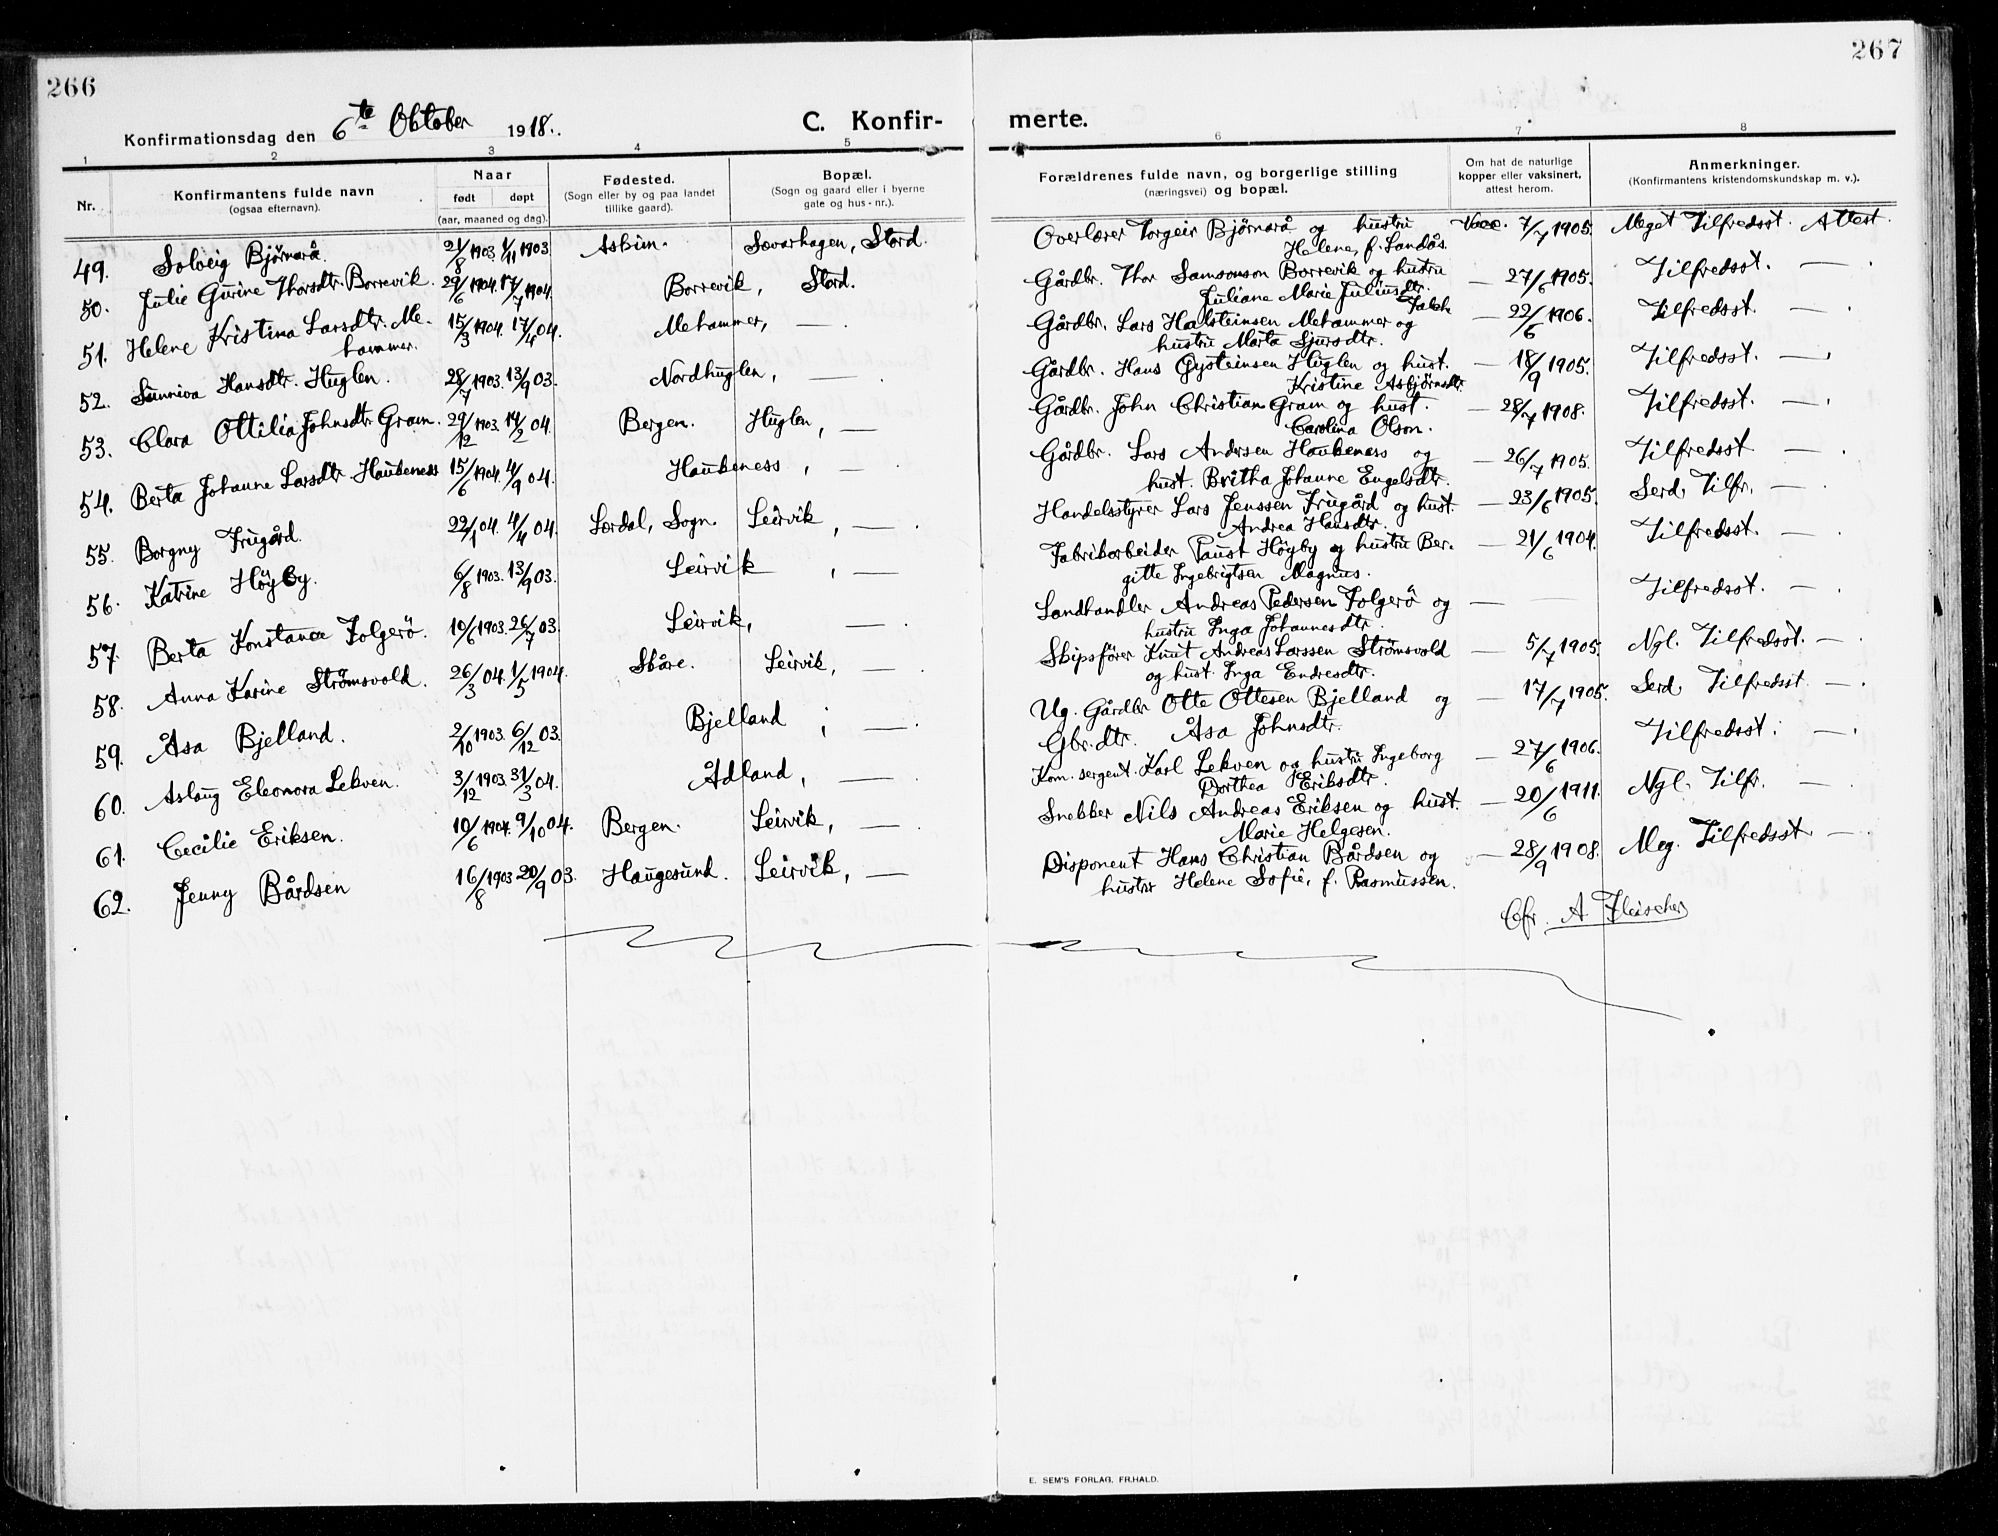 266
Konfirmationsdag den 6te Oktober 1918.
C. Konfir-
1 2 3 4 5
Nr.
Konfirmantens fulde navn
(ogsaa efternavn).
Naar
født døpt
(aar, maaned og dag).
Fødested.
(Sogn eller by og paa landet
tillike gaard).
Bopæl.
(Sogn og gaard eller i byerne
gate og hus-nr.).
49. Solveig Bjørnarå. 21/8 1903 1/11 1903 Askim. Sævarhagen, Stord.
50. Julie Gurine Thorsdtr. Borrevik. 29/6 1904. 17/7 1904. Borrevik, Stord.
51. Helene Kristina Larsdtr. Me-
hammer. 15/3 1904. 17/4 04. Mehammer, — .
52. Sunniva Hansdtr. Huglen. 28/7 1903. 13/9 03. Nordhuglen, — .
53. Clara Ottilia Johnsdtr. Gram. 29/12 1903. 14/2 04. Bergen. Huglen, —
54. Berta Johanne Larsdtr. Haukeness 15/6 1904. 4/9 04. Haukeness, — .
55. Borgny Frugård. 22/1 04. 4/4 04. Lærdal, Sogn. Leirvik, — .
56. Katrine Höyby. 6/8 1903. 13/9 03. Leirvik, —
57. Berta Konstanse Folgerö. 10/6 1903. 26/7 03. Leirvik, — .
58. Anna Karine Strømsvold. 26/3 04. 1/5 1904. Skåre. Leirvik, — .
59. Åsa Bjelland. 2/10 1903. 6/12 03. Bjelland, — .
60. Aslaug Eleonora Lekven. 3/12 1903. 31/3 04. Ådland, — .
61. Cecilie Eriksen. 10/6 1904. 9/10 04. Bergen. Leirvik, — .
62. Jenny Bårdsen 16/8 1903 20/9 03. Haugesund. Leirvik, —
267
merte.
6 7 8
Forældrenes fulde navn, og borgerlige stilling
(næringsvei) og bopæl.
Om hat de naturlige
kopper eller vaksinert,
attest herom.
Anmerkninger.
(Konfirmantens kristendomskundskap m. v.).
Overlærer Torgeir Bjørnarå og hustru Vacc. 7/7 1905. Meget Tilfredsst. Attest.
Helene, f. Landås.
Gårdbr. Thor Samsonson Borrevik og hustru — 27/6 1905. Tilfredsst. — .
Juliane Marie Juliusdtr.
Falch
Gårdbr. Lars Halsteinsen Mehammer og — 22/6 1906. Tilfredsst. — .
hustru Marta Sjursdtr.
Gårdbr. Hans Øysteinsen Huglen og hust. — 18/9 1905. Tilfredsst. — .
Kristine Asbjørnsdtr.
Gårdbr. John Christian Gram og hust. — 28/7 1908. Tilfredsst. — .
Carolina Olson.
Gårdbr. Lars Andersen Haukeness og — 26/7 1905. Tilfredsst — .
hust. Britha Johanne Engelsdtr.
Handelsstyrer Lars Jenssen Frugård og hust. — 23/6 1905. Serd. Tilfr. — .
Andrea Hansdtr.
Fabrikarbeider Paust Höyby og hustru Ber- — 21/6 1904. Tilfredsst. — .
gitte Ingebrigtsen Magnus.
Landhandler Andreas Pedersen Folgerö og — — Tilfredsst. — .
hustru Inga Johannesdtr.
Skipsfører Knut Andreas Larssen Strømsvold — 5/7 1905. Ngl. Tilfredsst. — .
og hust. Inga Endresdtr.
Ug. Gårdbr. Otte Ottesen Bjelland og — 17/7 1905. Serd. Tilfredsst. — .
Gbr.dtr. Åsa Johnsdtr.
Kom. sergent. Karl Lekven og hustru Ingeborg — 27/6 1906. Tilfredsst. — .
Dorthea Eriksdtr.
Snekker Nils Andreas Eriksen og hust. — 20/6 1911. Ngl. Tilfr. — .
Marie Helgesen.
Disponent Hans Christian Bårdsen og — 28/9 1908. Meg. Tilfredsst — .
hustru Helene Sofie, f. Rasmussen.
Cfr. A. Fleischer
E. SEM'S FORLAG, FR.HALD.